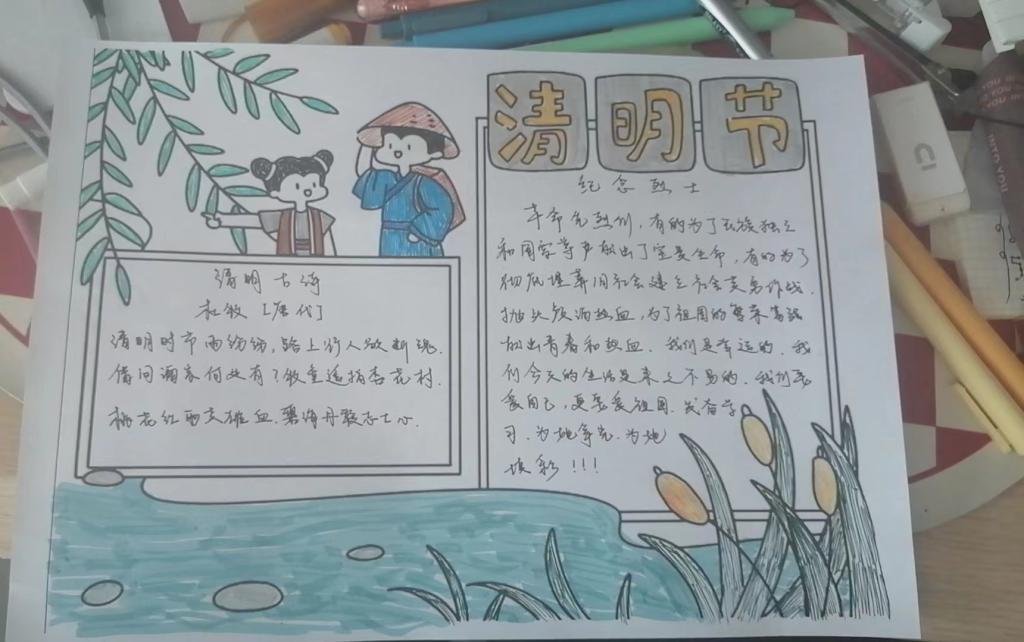 清明节
清明古诗
杜牧[唐代]
清明时节雨纷纷,路上行人欲断魂.
借问酒家何处有?牧童遥指杏花村.
桃花红雨英雄血.碧海丹霞志士心.
纪念烈士
革命先烈们,有的为了民族独立
和国家尊严献出了宝贵生命,有的为了
彻底埋葬旧社会建立社会主义而作战.
抛头颅洒热血,为了祖国的繁荣富强
献出青春和热血.我们是幸运的.我
们今天的生活是来之不易的.我们要
爱自己,更要爱祖国.发奋学
习.为她争光.为她
添彩!!!
CI
INTO YOU